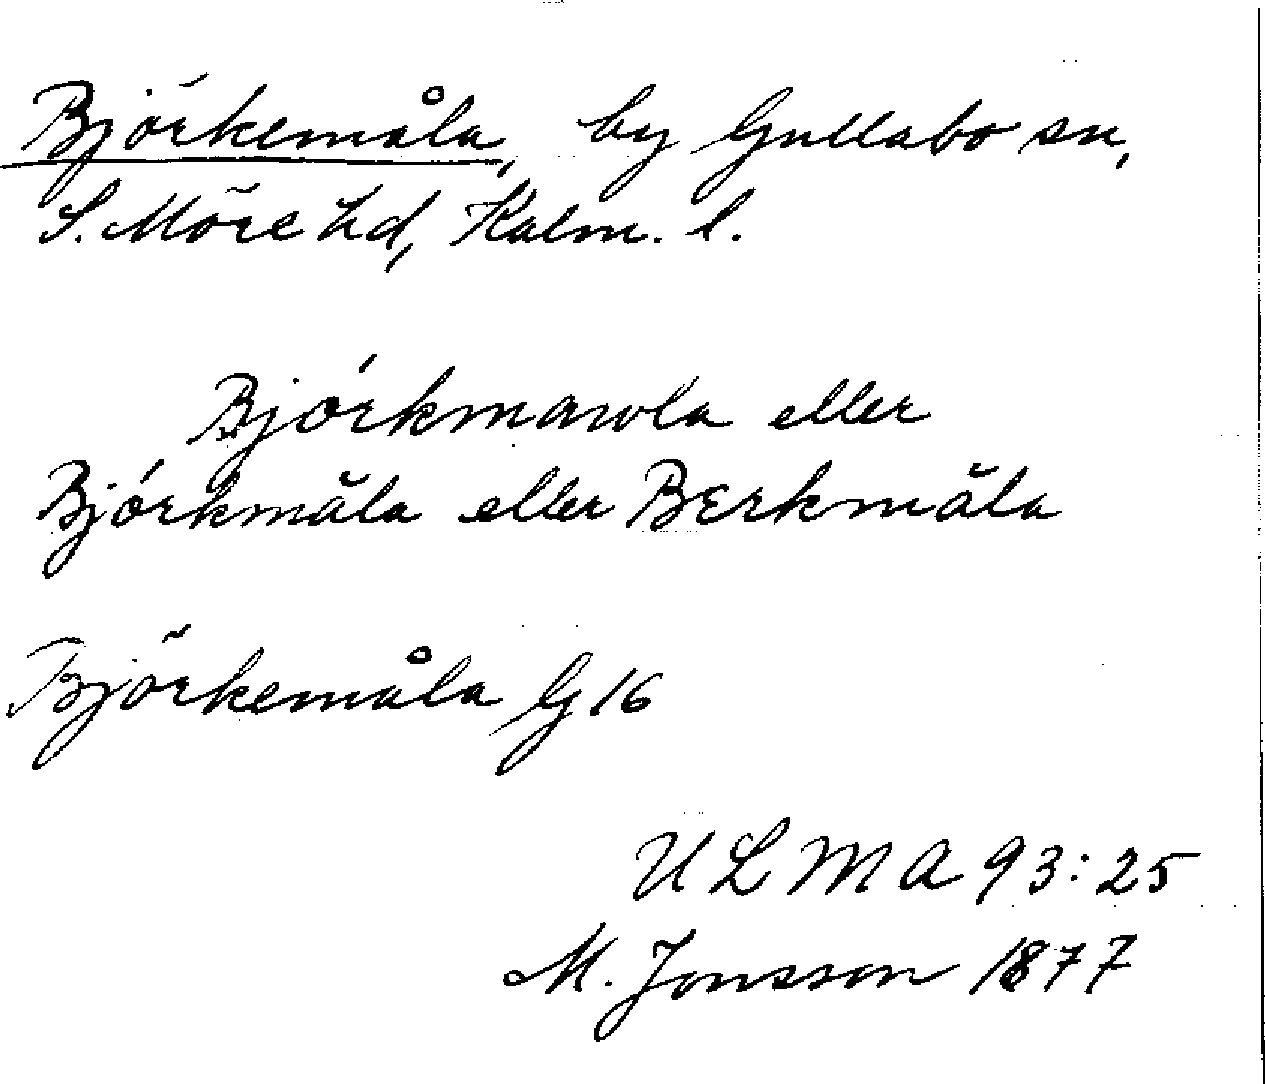 Björkemåla, by Gullabo sn,
S. Möre hd, Kalm. l.
Bjórkmawla eller
Bjórkmăla eller Bɛrkmăla
Björkemåla G 16
ULMA 93:25
M. Jonsson 1877